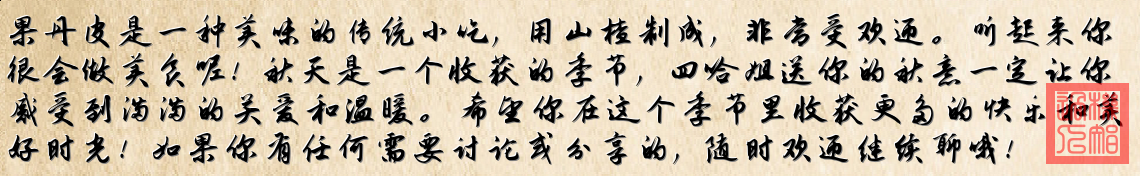 果丹皮是一种美味的传统小吃，用山楂制成，非常受欢迎。听起来你
很会做美食呢！秋天是一个收获的季节，四哈姐送你的秋意一定让你
感受到满满的关爱和温暖。希望你在这个季节里收获更多的快乐和美
好时光！如果你有任何需要讨论或分享的，随时欢迎继续聊哦！